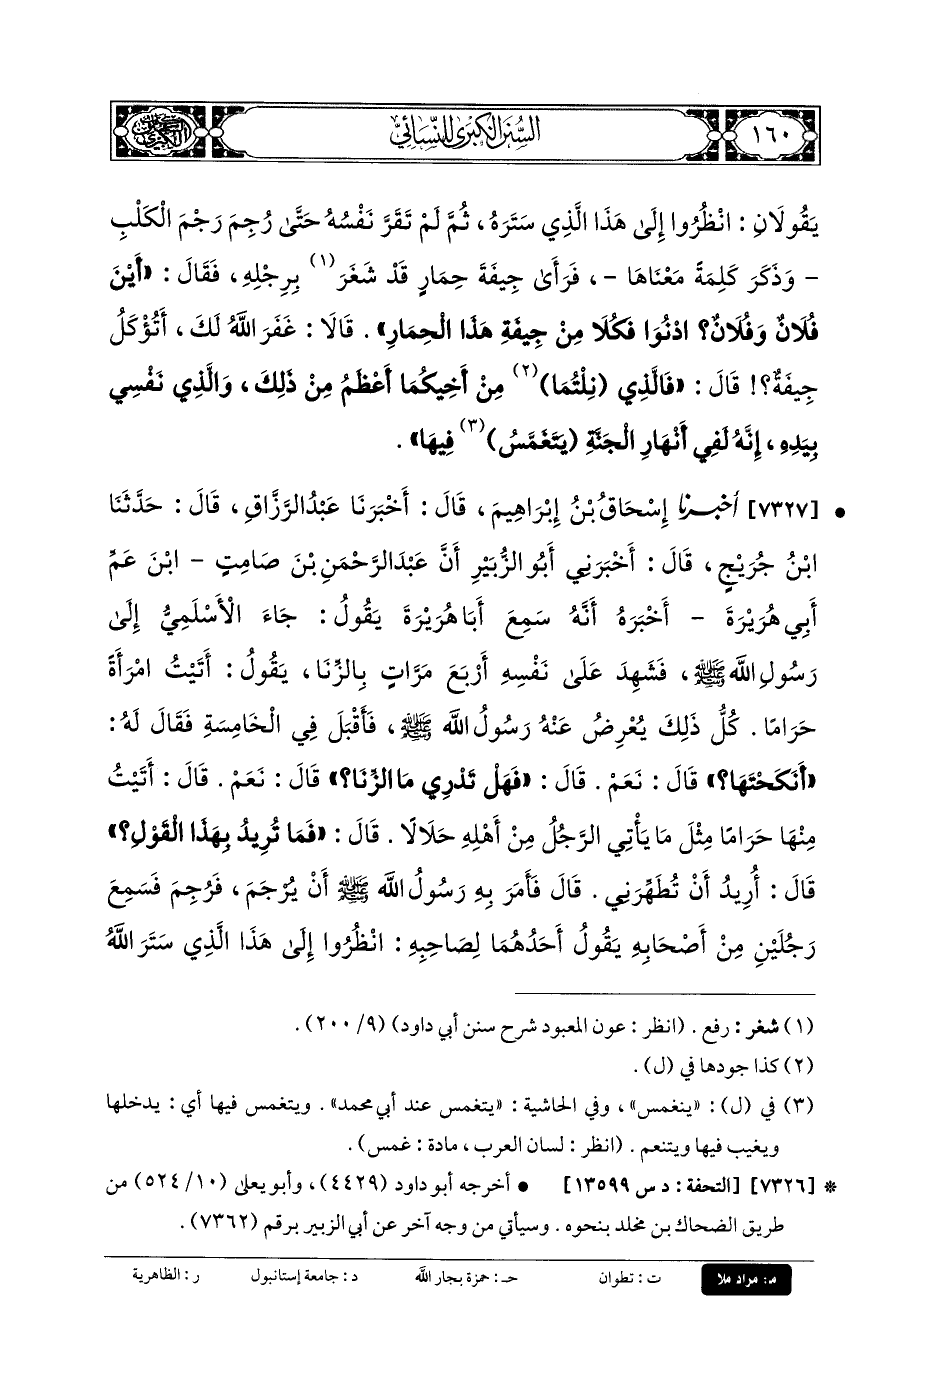 ١٦٠
السنن الكبرى للنسائي
يَقُولَانِ : انْظُرُوا إِلَىٰ هَذَا الَّذِي سَتَرَهُ ، ثُمَّ لَمْ تَقَرَّ نَفْسُهُ حَتَّىٰ رُجِمَ رَجْمَ الْكَلْبِ
- وَذَكَرَ كَلِمَةً مَعْنَاهَا - ، فَرَأَىٰ جِيفَةَ حِمَارٍ قَدْ شَغَرَ(١) بِرِجْلِهِ ، فَقَالَ : «أَيْنَ
فُلَانٌ وَفُلَانٌ؟ ادْنُوَا فَكُلَا مِنْ جِيفَةِ هَذَا الْحِمَارِ» . قَالَا : غَفَرَ اللَّهُ لَكَ ، أَتُؤْكَلُ
جِيفَةٌ؟! قَالَ : «فَالَّذِي (نِلْتُمَا)(٢) مِنْ أَخِيكُمَا أَعْظَمُ مِنْ ذَلِكَ ، وَالَّذِي نَفْسِي
بِيَدِهِ ، إِنَّهُ لَفِي أَنْهَارِ الْجَنَّةِ (يَتَغَمَّسُ)(٣) فِيهَا» .
• [٧٣٢٧] أخبرنا إِسْحَاقُ بْنُ إِبْرَاهِيمَ ، قَالَ : أَخْبَرَنَا عَبْدُ الرَّزَّاقِ ، قَالَ : حَدَّثَنَا
ابْنُ جُرَيْجٍ ، قَالَ : أَخْبَرَنِي أَبُو الزُّبَيْرِ أَنَّ عَبْدَ الرَّحْمَنِ بْنَ صَامِتٍ - ابْنَ عَمِّ
أَبِي هُرَيْرَةَ - أَخْبَرَهُ أَنَّهُ سَمِعَ أَبَا هُرَيْرَةَ يَقُولُ : جَاءَ الْأَسْلَمِيُّ إِلَىٰ
رَسُولِ اللَّهِ ﷺ ، فَشَهِدَ عَلَىٰ نَفْسِهِ أَرْبَعَ مَرَّاتٍ بِالزِّنَا ، يَقُولُ : أَتَيْتُ امْرَأَةً
حَرَامًا . كُلُّ ذَلِكَ يُعْرِضُ عَنْهُ رَسُولُ اللَّهِ ﷺ ، فَأَقْبَلَ فِي الْخَامِسَةِ فَقَالَ لَهُ :
«أَنَكَحْتَهَا؟» قَالَ : نَعَمْ . قَالَ : «فَهَلْ تَدْرِي مَا الزِّنَا؟» قَالَ : نَعَمْ . قَالَ : أَتَيْتُ
مِنْهَا حَرَامًا مِثْلَ مَا يَأْتِي الرَّجُلُ مِنْ أَهْلِهِ حَلَالًا . قَالَ : «فَمَا تُرِيدُ بِهَذَا الْقَوْلِ؟»
قَالَ : أُرِيدُ أَنْ تُطَهِّرَنِي . قَالَ فَأَمَرَ بِهِ رَسُولُ اللَّهِ ﷺ أَنْ يُرْجَمَ ، فَرُجِمَ فَسَمِعَ
رَجُلَيْنِ مِنْ أَصْحَابِهِ يَقُولُ أَحَدُهُمَا لِصَاحِبِهِ : انْظُرُوا إِلَىٰ هَذَا الَّذِي سَتَرَ اللَّهُ
(١) شغر : رفع . (انظر : عون المعبود شرح سنن أبي داود) (٩/ ٢٠٠) .
(٢) كذا جودها في (ل) .
(٣) في (ل) : «ينغمس» ، وفي الحاشية : «يتغمس عند أبي محمد» . ويتغمس فيها أي : يدخلها
ويغيب فيها ويتنعم . (انظر : لسان العرب ، مادة : غمس) .
* [٧٣٢٦] [التحفة : د س ١٣٥٩٩] • أخرجه أبو داود (٤٤٢٩) ، وأبو يعلى (١٠/ ٥٢٤) من
طريق الضحاك بن مخلد بنحوه . وسيأتي من وجه آخر عن أبي الزبير برقم (٧٣٦٢) .
م: مراد ملا ت : تطوان حـ : حمزة بجار الله د : جامعة إستانبول ر : الظاهرية